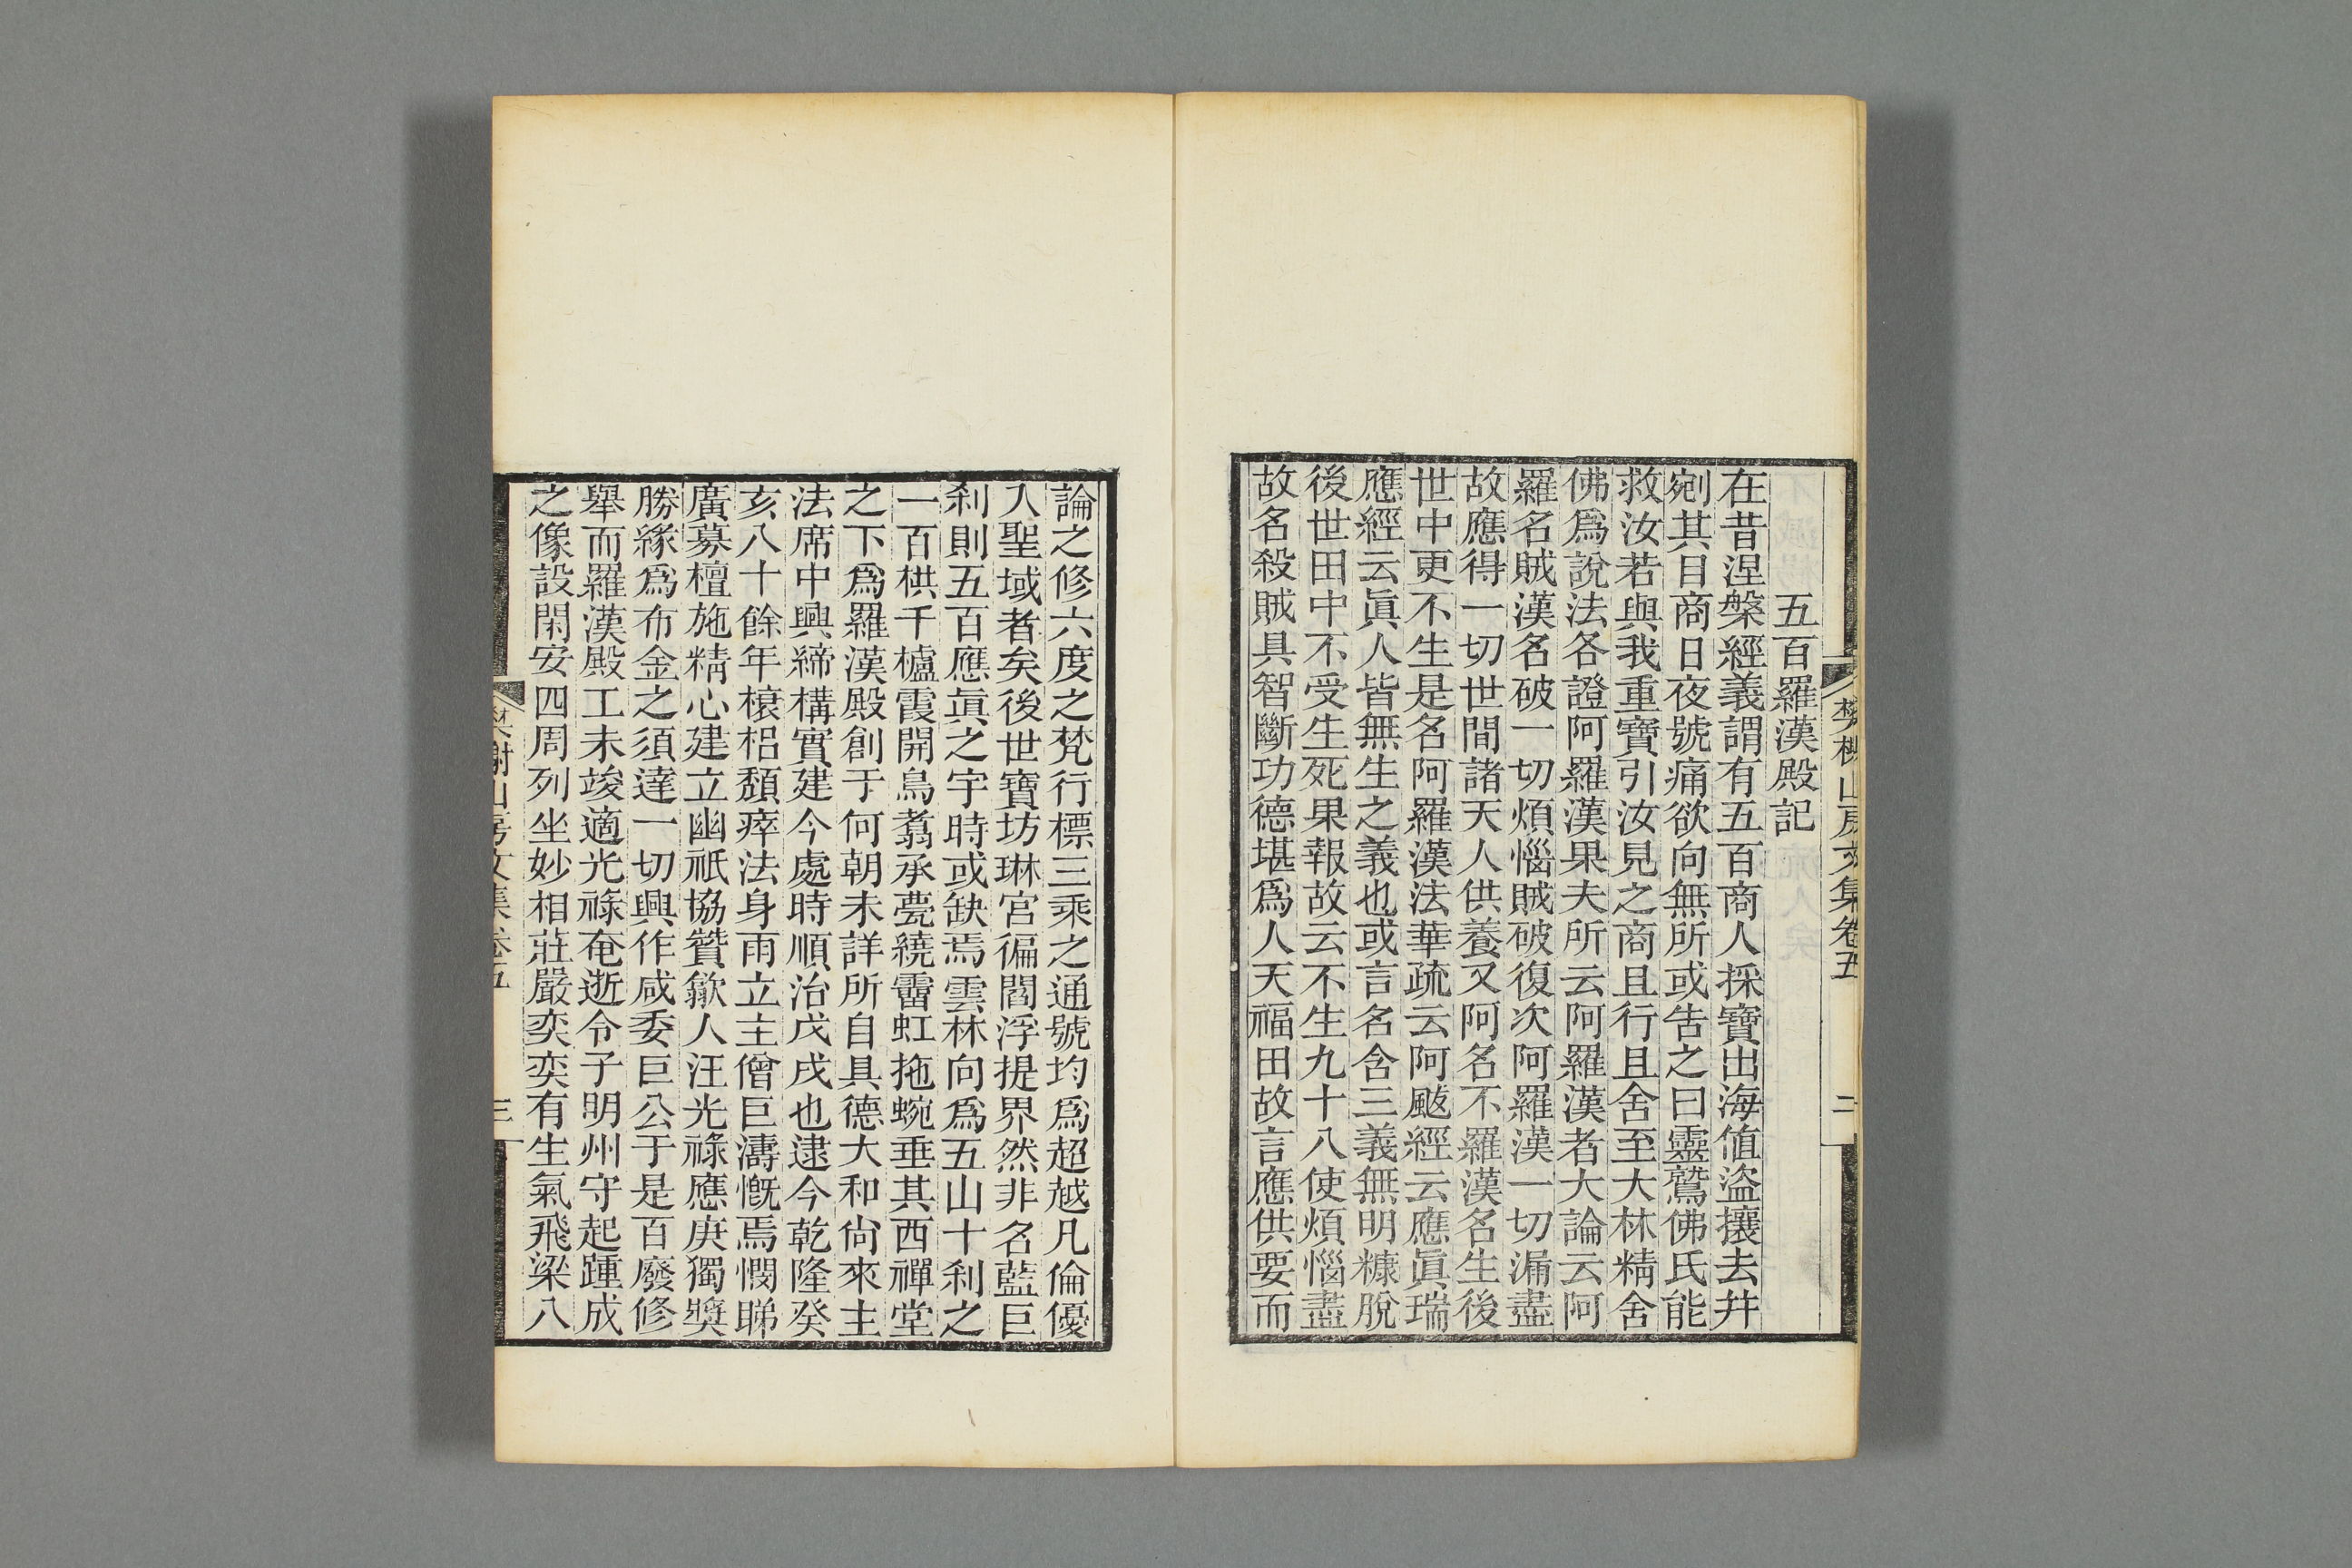 樊榭山房文集卷五
二
五百羅漢殿記
在昔涅槃經義謂有五百商人採寶出海値盜攘去幷
剜其目商日夜號痛欲向無所或告之曰靈鷲佛氏能
救汝若與我重寶引汝見之商且行且舍至大林精舍
佛爲說法各證阿羅漢果夫所云阿羅漢者大論云阿
羅名賊漢名破一切煩惱賊破復次阿羅漢一切漏盡
故應得一切世間諸天人供養又阿名不羅漢名生後
世中更不生是名阿羅漢法華疏云阿颰經云應眞瑞
應經云眞人皆無生之義也或言名含三義無明糠脫
後世田中不受生死果報故云不生九十八使煩惱盡
故名殺賊具智斷功德堪爲人天福田故言應供要而
論之修六度之梵行標三乘之通號均爲超越凡倫優
入聖域者矣後世寶坊琳宮徧閻浮提界然非名藍巨
刹則五百應眞之宇時或缺焉雲林向爲五山十刹之
一百栱千櫨霞開鳥翥承甍繞霤虹拖蜿垂其西禪堂
之下爲羅漢殿創于何朝未詳所自具德大和尙來主
法席中興締構實建今處時順治戊戌也逮今乾隆癸
亥八十餘年榱梠頽瘁法身雨立主僧巨濤慨焉憫睇
廣募檀施精心建立幽祇協贊歙人汪光祿應庚獨奬
勝緣爲布金之須達一切興作咸委巨公于是百廢修
舉而羅漢殿工未竣適光祿奄逝令子明州守起踵成
之像設閑安四周列坐妙相莊嚴奕奕有生氣飛梁八
樊榭山房文集卷五
三